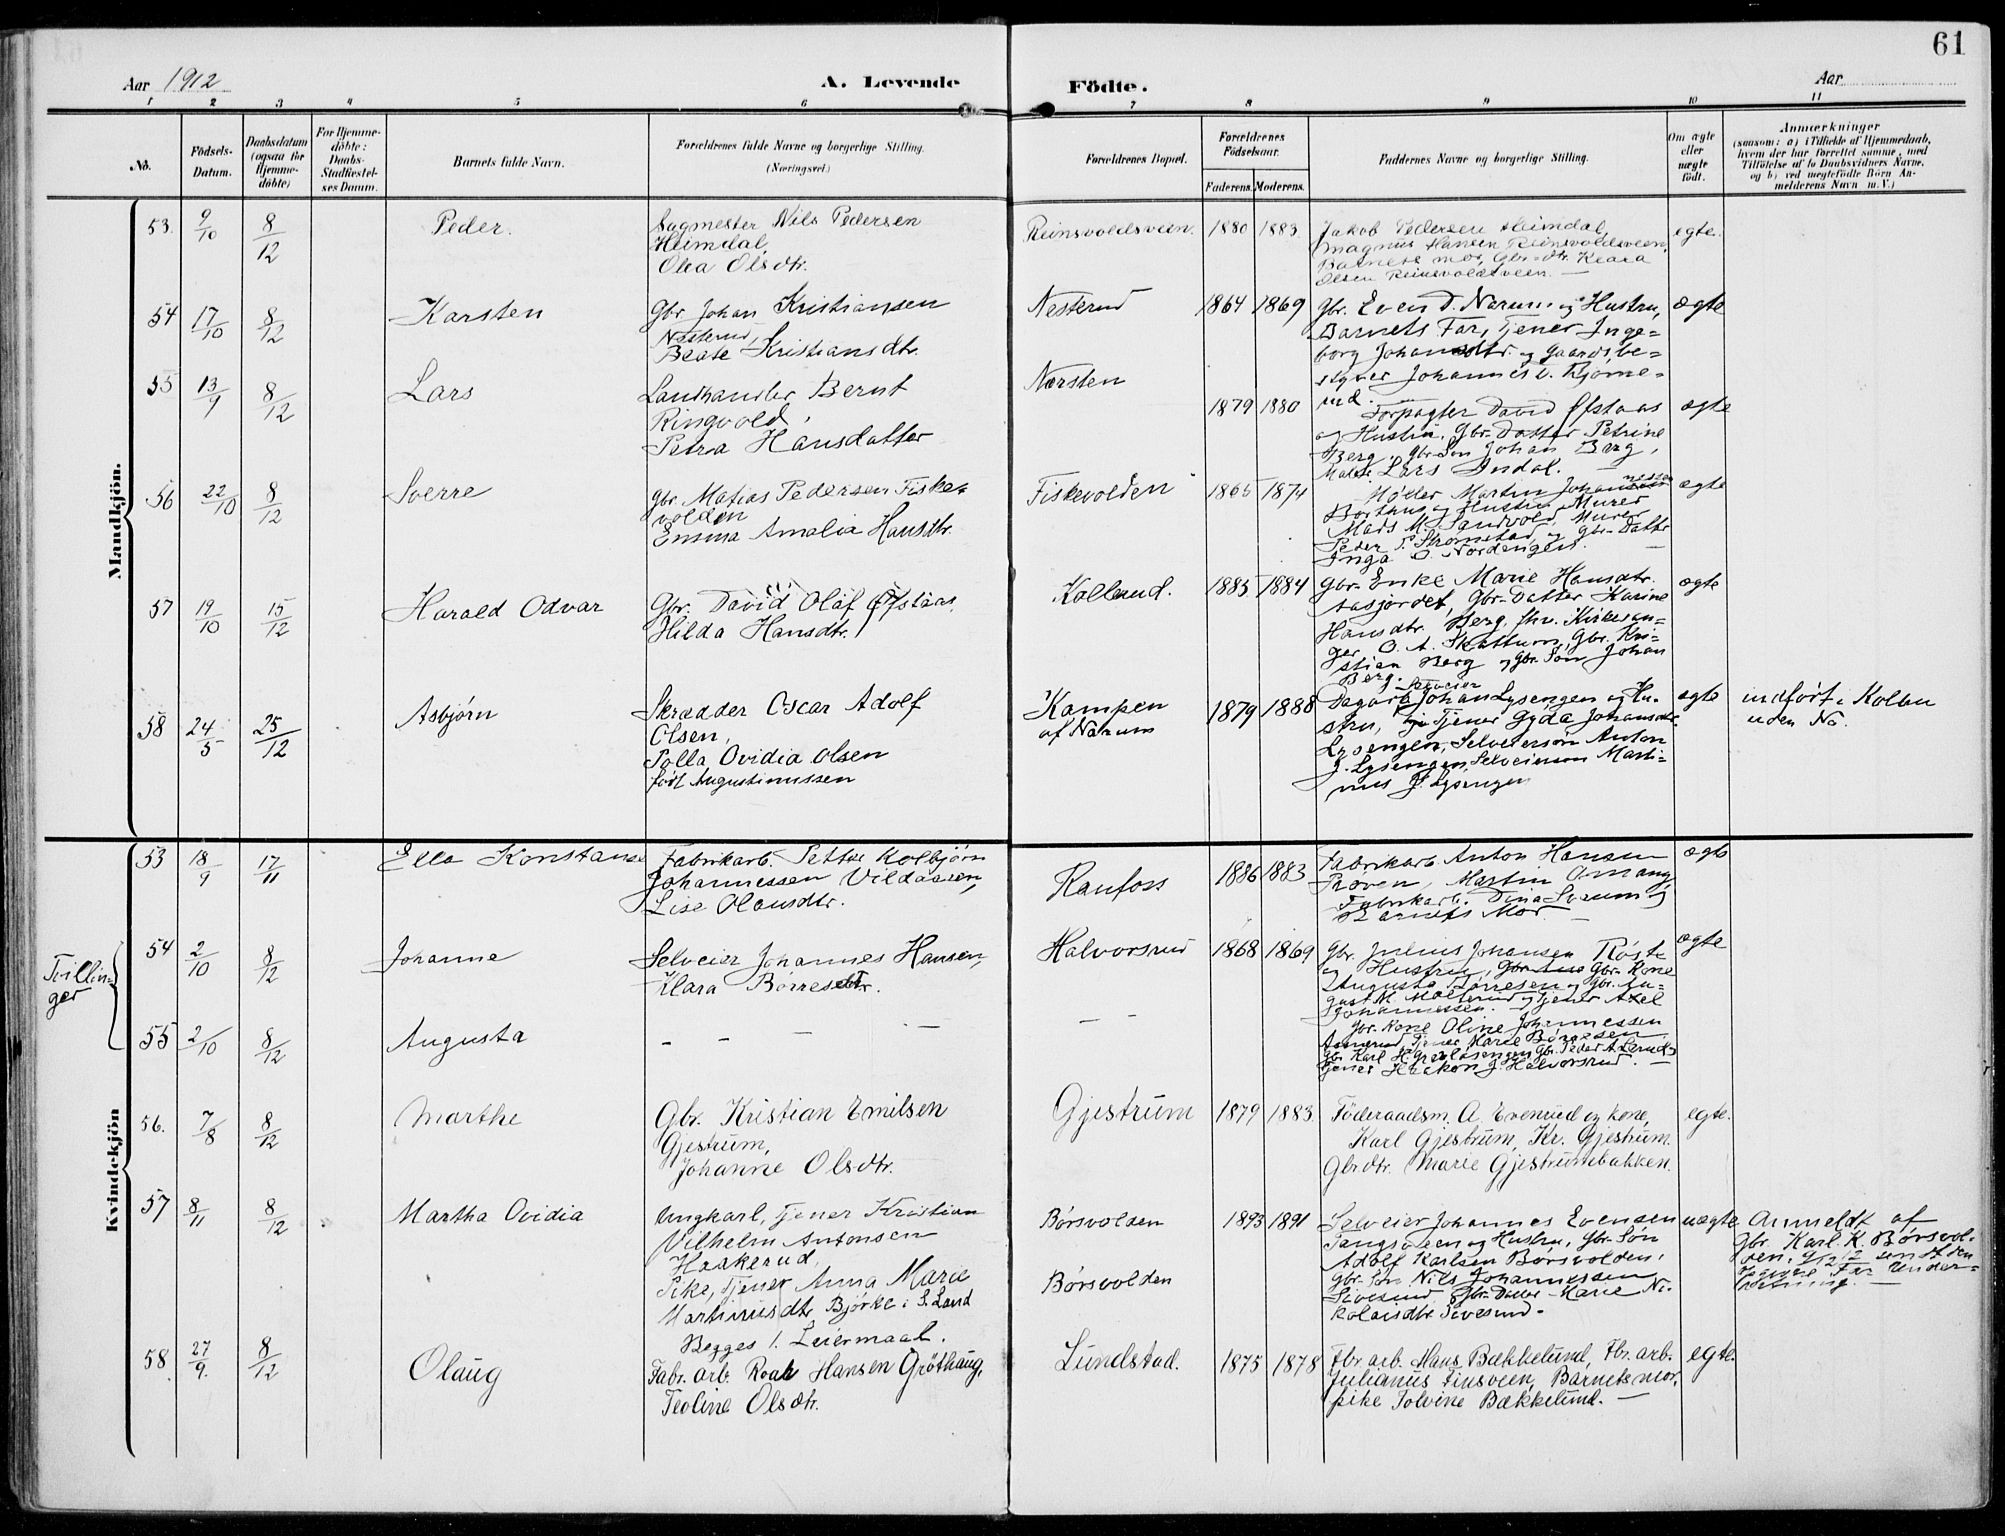 61
Aar 1912
A. Levende
Födte.
Aar
1 2 3 4 5 6 7 8 9 10 11
No.
Födsels-Datum.
Daabsdatum (ogsaa for Hjemme-döbte)
For Hjemme-döbte: Daabs-Stadfæstel-ses Datum.
Barnets fulde Navn.
Forældrenes fulde Navne og borgerlige Stilling. (Næringsvei.)
Forældrenes Bopæl.
Forældrenes Födselsaar.
Faderens. Moderens.
Faddernes Navne og borgerlige Stilling.
Om ægte eller uægte födt.
Anmærkninger
(saasom: a) i Tilfælde af Hjemmedaab, hvem der har forrettet samme, med Tilföielse af to Daabsvidners Navne, og b) ved uægtefödte Börn An-melderens Navn m. V.)
Mandkjön.
53. 9/10 8/12 Peder.
Sagmester Nils Pedersen
Heimdal,
Olea Olsdtr.
Reinsvoldsveen. 1880 1883
Jakob Pedersen Heimdal,
Magnus Hansen Reinsvoldsveen,
Barnets mor, Gbr-dtr. Klara
Olsen Reinsvoldsveen. —
egte.
54 17/10 8/12 Karsten
Gbr. Johan Kristiansen
Nesterud,
Beate Kristiansdtr.
Nesterud 1864 1869
Gbr. Even D. Narum og Hustru,
Barnets Far, Tjener Inge-
borg Johansdtr. og Gaardsbe-
styrer Johannes
ægte
55 13/9 8/12 Lars
Landhandler Bernt
Ringvold,
Petra Hansdatter
Nærsten 1879 1880
Forpagter David Øfstaas
og Hustru, Gbr-Datter Petrine
Berg, Gbr-Søn Johan Berg,
Lars Indal.
ægte
56 22/10 8/12 Sverre
Gbr. Matias Pedersen Fiske-
volden
Emma Amalia Hansdtr.
Fiskevolden 1865 1874
Møller Martin Johannessen
Borthus og Hustru, Murer
Mads M. Sandvold, Murer
Peder P. Strømstad og Gbr-Datter
Inga O. Nordengen.
ægte
57 19/10 15/12 Harald Odvar
Gbr. David Olaf Øfstaas,
Hilda Hansdtr.
Kollerud. 1885 1884
Gbr-Enke Marie Hansdtr.
Aasjordet, Gbr-Datter Karine
Hansdtr. Berg, fhv. Kirkesan-
ger O. A. Skattum, Gbr. Kri-
stian Berg og Gbr. Søn Johan
Berg.
ægte
58 24/5 25/12 Asbjørn
Skrædder Oscar Adolf
Olsen,
Polla Ovidia Olsen
født Augustinussen
Kampen
af Narum
1879 1888
Selveier
Dagarb Johan Lysengen og Hu-
stru, Tjener Gyda Johansdtr.
Lysengen, Selveiersøn Anton
J. Lysengen, Selveiersøn Marti-
nus J. Lysengen
ægte
indført i Kolbu
uden No.
Kvindekjön
53 18/9 17/11 Ella Konstanse
Fabrikarb. Petter Kolbjørn
Johannessen Vildaasen,
Lise Olausdtr.
Raufoss 1886 1883
Fabrikarb. Anton Hansen
Prøven, Martin Omang,
Fabrikarb. Dina Sørum og
Barnets Mor. —
ægte
Tvillin-
ger
54 2/10 8/12 Johanne
Selveier Johannes Hansen,
Klara Børresdtr.
Halvorsrud 1868 1869
Gbr. Julius Johansen Røste
og Hustru, Gbr. Kone
Augusta Børresen og Gbr. Au-
gust M. og Tjener Axel
Johannessen. —
ægte
55 2/10 8/12 Augusta
— —
— —
Gbr. Kone Oline Johannessen
Tjener Marie Børresen
Gbr Karl Gbr. Peder
Tjener Haakon J. Halvorsrud. —
56. 7/8 8/12 Marthe
Gbr. Kristian Emilsen
Gjestrum,
Johanne Olsdtr.
Gjestrum 1879 1883
Föderaadsm. A. Evenrud og kone,
Karl Gjestrum, Kr. Gjestrum.
Gbrdtr. Marie Gjestrumbakken.
egte.
57 8/11 8/12 Martha Ovidia
Ungkarl, Tjener Kristian
Vilhelm Antonsen
Haakerud,
Pike, Tjener Anna Marie
Martinusdtr. Björke i S. Land
Begges 1. Leiermaal.
Børsvolden
Børsvolden
1893 1891
Selveier Johannes Evensen
og Hustru, Gbr. Søn
Adolf Karlsen Børsvolden,
Gbr. Søn Nils Johannessen
Sivesind, Gbr-Datter Marie Ni-
kolaisdtr Sivesind.
uægte
Anmeldt af
Gbr. Karl K. Børsvol-
den. 9/12 sendt den
opgivne Far Under-
retning. —
58 27/9. 8/12 Olaug
Fabr. arb. Roar Hansen Gröthaug,
Teoline Olsdtr.
Lundstad. 1875 1878
Fbr. arb. Hans Bækkelund, Fbr. arb.
Julianus Finsveen, Barnets mor,
pike Tolvine Bækkelund. —
egte.